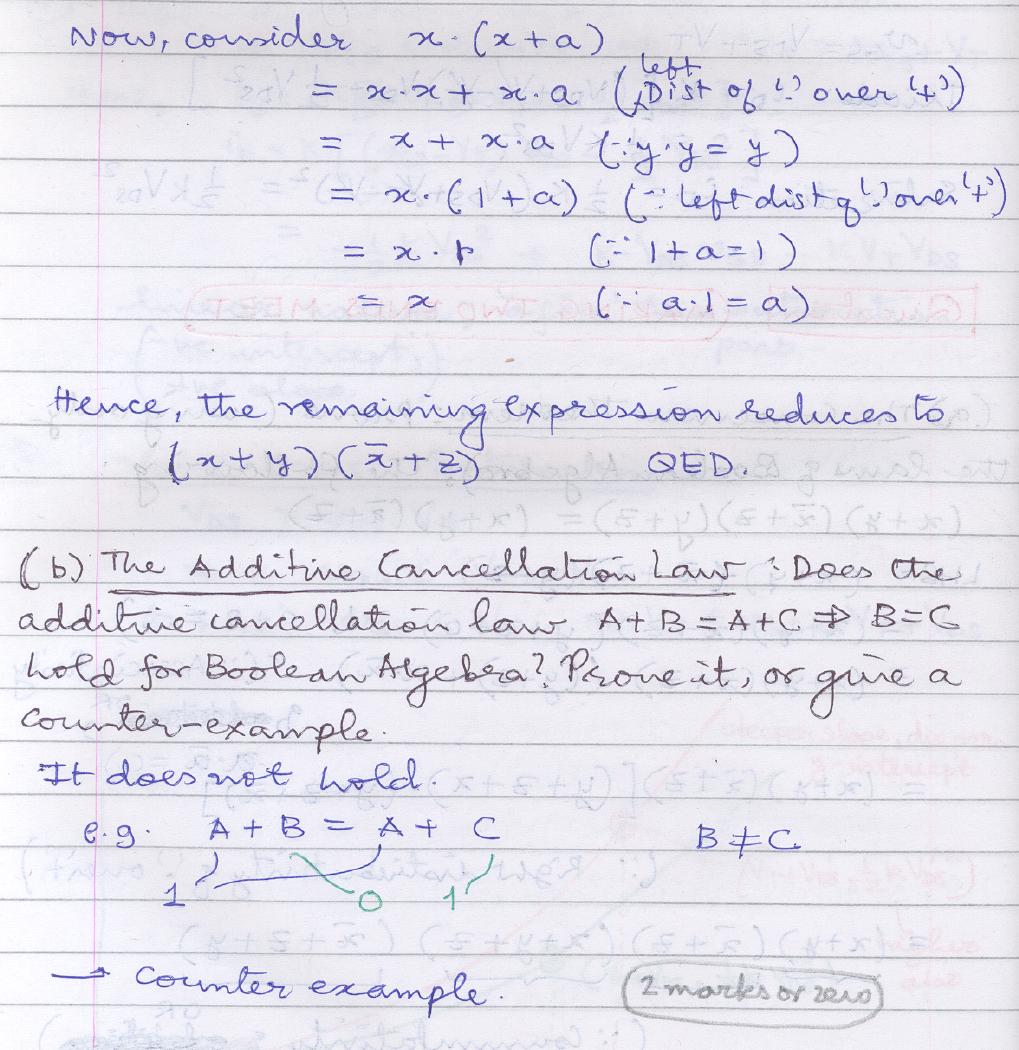 Now, consider x·(x+a)
= x·x + x·a (left Dist of '·' over '+')
= x + x·a (∵ y·y = y)
= x·(1+a) (∵ left dist of '·' over '+')
= x·1 (∵ 1+a=1)
= x (∵ a·1 = a)
Hence, the remaining expression reduces to
(x+y)(x̄+z) QED.
(b) The Additive Cancellation Law : Does the
additive cancellation law A+B = A+C ⇒ B=C
hold for Boolean Algebra? Prove it, or give a
counter-example.
It does not hold.
e.g. A + B = A + C B ≠ C
1 0 1
→ Counter example. 2 marks or zero